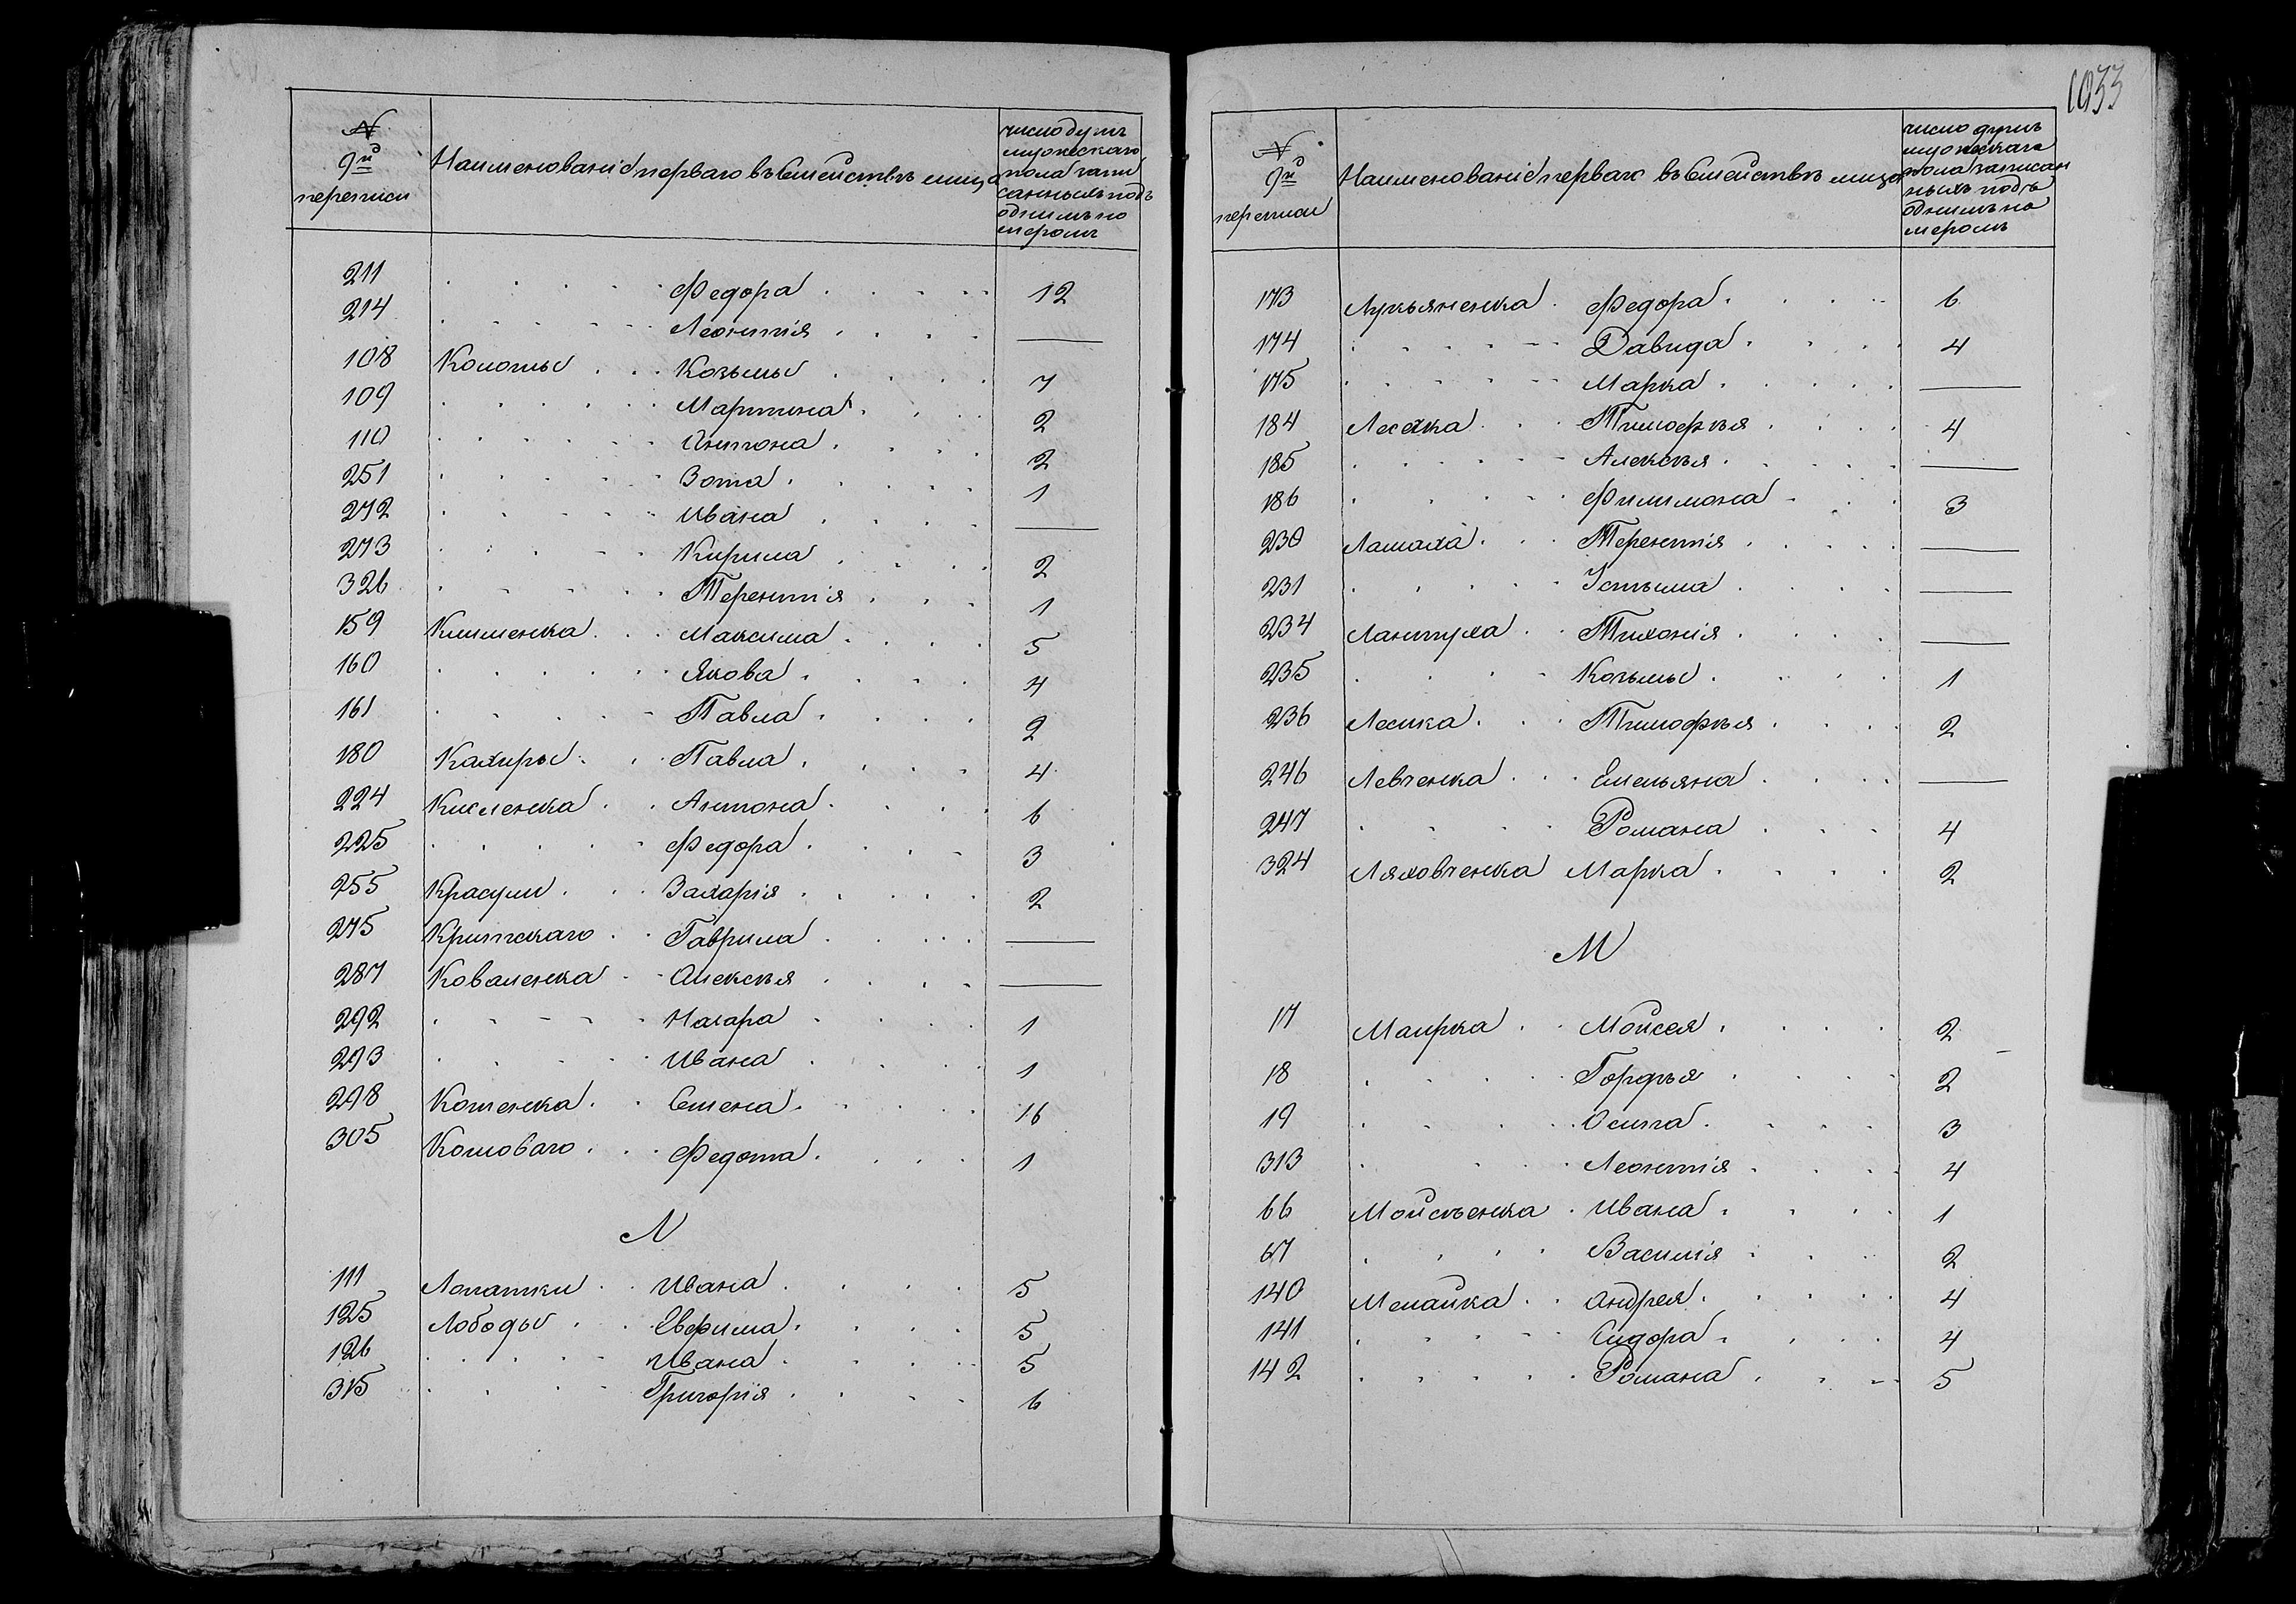 1033
№ 9й переписи | Наименованіе перваго въ семействѣ лица | число душъ мужескаго пола запи санныхъ подъ однимъ но меромъ
211 Федора 12
214 Леонтія —
108 Колоты Козьмы 7
109 Мартина 2
110 Антона 2
251 Зота 1
272 Ивана —
273 Кирила 2
326 Терентія 1
159 Клименка Максима 5
160 Якова 4
161 Павла 2
180 Кахиры Павла 4
224 Кисленка Антона 6
225 Федора 3
255 Красули Захарія 2
275 Критскаго Гаврила —
287 Коваленка Алексѣя —
292 Назара 1
293 Ивана 1
298 Котенка Семена 16
305 Кошоваго Федота 1
Л
111 Лопатки Ивана 5
125 Лободы Евфима 5
126 Ивана 5
315 Григорія 6
№ 9й переписи | Наименованіе перваго въ семействѣ лица | число душъ мужескаго пола записан ныхъ подъ однимъ но меромъ
173 Лукьяненка Федора 6
174 Давида 4
175 Марка —
184 Лесяка Тимофѣя 4
185 Алексѣя —
186 Филимона 3
230 Лашаха Терентія —
231 Устыма —
234 Лантуха Тихонія —
235 Козьмы 1
236 Лесика Тимофѣя 2
246 Левченка Емельяна —
247 Романа 4
324 Ляховченка Марка 2
М
17 Маирка Мойсея 2
18 Гордѣя 2
19 Осипа 3
313 Леонтія 4
66 Мойсѣенка Ивана 1
67 Василія 2
140 Мелайка Андрея 4
141 Сидора 4
142 Романа 5